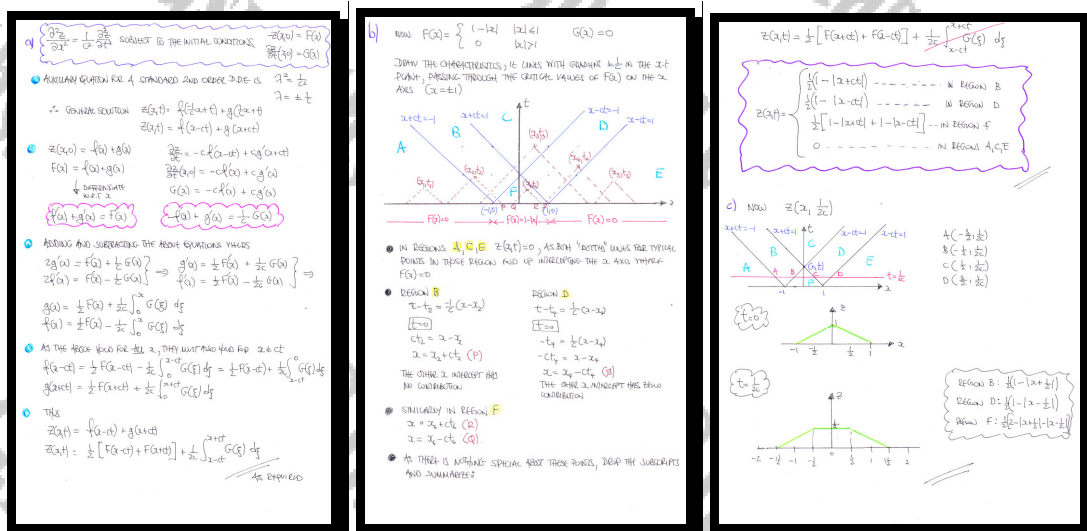 a) ∂²z/∂x² = 1/c² ∂²z/∂t² SUBJECT TO THE INITIAL CONDITIONS z(x,0) = F(x)
∂z/∂t(x,0) = G(x)
AUXILIARY EQUATION FOR A STANDARD 2ND ORDER P.D.E IS λ² = 1/c²
λ = ± 1/c
∴ GENERAL SOLUTION z(x,t) = f(-1/c x + t) + g(1/c x + t)
z(x,t) = f(x-ct) + g(x+ct)
z(x,0) = f(x) + g(x)
F(x) = f(x) + g(x)
↓ DIFFERENTIATE W.R.T x
f'(x) + g'(x) = F'(x)
∂z/∂t = -cf'(x-ct) + cg'(x+ct)
∂z/∂t(x,0) = -cf'(x) + cg'(x)
G(x) = -cf'(x) + cg'(x)
-f'(x) + g'(x) = 1/c G(x)
ADDING AND SUBTRACTING THE ABOVE EQUATIONS YIELDS
2g'(x) = F'(x) + 1/c G(x) } ⇒ g'(x) = 1/2 F'(x) + 1/2c G(x) } ⇒
2f'(x) = F'(x) - 1/c G(x) } f'(x) = 1/2 F'(x) - 1/2c G(x) }
g(x) = 1/2 F(x) + 1/2c ∫₀ˣ G(ξ) dξ
f(x) = 1/2 F(x) - 1/2c ∫₀ˣ G(ξ) dξ
AS THE ABOVE HOLD FOR ALL x, THEY MUST ALSO HOLD FOR x ± ct
f(x-ct) = 1/2 F(x-ct) - 1/2c ∫₀^(x-ct) G(ξ) dξ = 1/2 F(x-ct) + 1/2c ∫_(x-ct)^0 G(ξ) dξ
g(x+ct) = 1/2 F(x+ct) + 1/2c ∫₀^(x+ct) G(ξ) dξ
THUS
z(x,t) = f(x-ct) + g(x+ct)
z(x,t) = 1/2 [F(x-ct) + F(x+ct)] + 1/2c ∫_(x-ct)^(x+ct) G(ξ) dξ
AS REQUIRED
b) NOW F(x) = { 1-|x| |x| ≤ 1 G(x) = 0
0 |x| > 1
DRAW THE CHARACTERISTICS, IE LINES WITH GRADIENT ± 1/c IN THE x-t
PLANE, PASSING THROUGH THE CRITICAL VALUES OF F(x) ON THE x
AXIS (x = ±1)
t
x+ct=-1 x+ct=1 C x-ct=-1 x-ct=1
A B D E
F
(-1,0) P Q R (1,0) x
F(x)=0 F(x)=1-|x| F(x)=0
IN REGIONS A, C, E z(x,t) = 0, AS BOTH "DOTTED" LINES FOR TYPICAL
POINTS IN THOSE REGION END UP INTERCEPTING THE x AXIS WHERE
F(x) = 0
REGION B
t - t₂ = -1/c (x - x₂)
t=0
ct₂ = x - x₂
x = x₂ + ct₂ (P)
THE OTHER x INTERCEPT HAS
NO CONTRIBUTION
REGION D
t - t₄ = 1/c (x - x₄)
t=0
-t₄ = 1/c (x - x₄)
-ct₄ = x - x₄
x = x₄ - ct₄
THE OTHER x INTERCEPT HAS ZERO
CONTRIBUTION
SIMILARLY IN REGION F
x = x₆ + ct₆ (R)
x = x₆ - ct₆ (Q)
AS THERE IS NOTHING SPECIAL ABOUT THESE POINTS, DROP THE SUBSCRIPTS
AND SUMMARIZE:
z(x,t) = 1/2 [F(x+ct) + F(x-ct)] + 1/2c ∫_(x-ct)^(x+ct) G(ξ) dξ
z(x,t) = { 1/2 (1 - |x+ct|) IN REGION B
1/2 (1 - |x-ct|) IN REGION D
1/2 [1 - |x+ct| + 1 - |x-ct|] IN REGION F
0 IN REGIONS A, C, E
c) NOW z(x, 1/2c)
x+ct=-1 x+ct=1 t x-ct=-1 x-ct=1
A B C D E
F
t = 1/2c
-1 1 x
A(-3/2, 1/2c)
B(-1/2, 1/2c)
C(1/2, 1/2c)
D(3/2, 1/2c)
t=0
z
-1 -1/2 1/2 1 x
t = 1/2c
z
1/2
-2 -1 1/2 -1 -1/2 0 1/2 1 1 1/2 2
REGION B: 1/2 (1 - |x + 1/2|)
REGION D: 1/2 (1 - |x - 1/2|)
REGION F: 1/2 [2 - |x + 1/2| - |x - 1/2|]